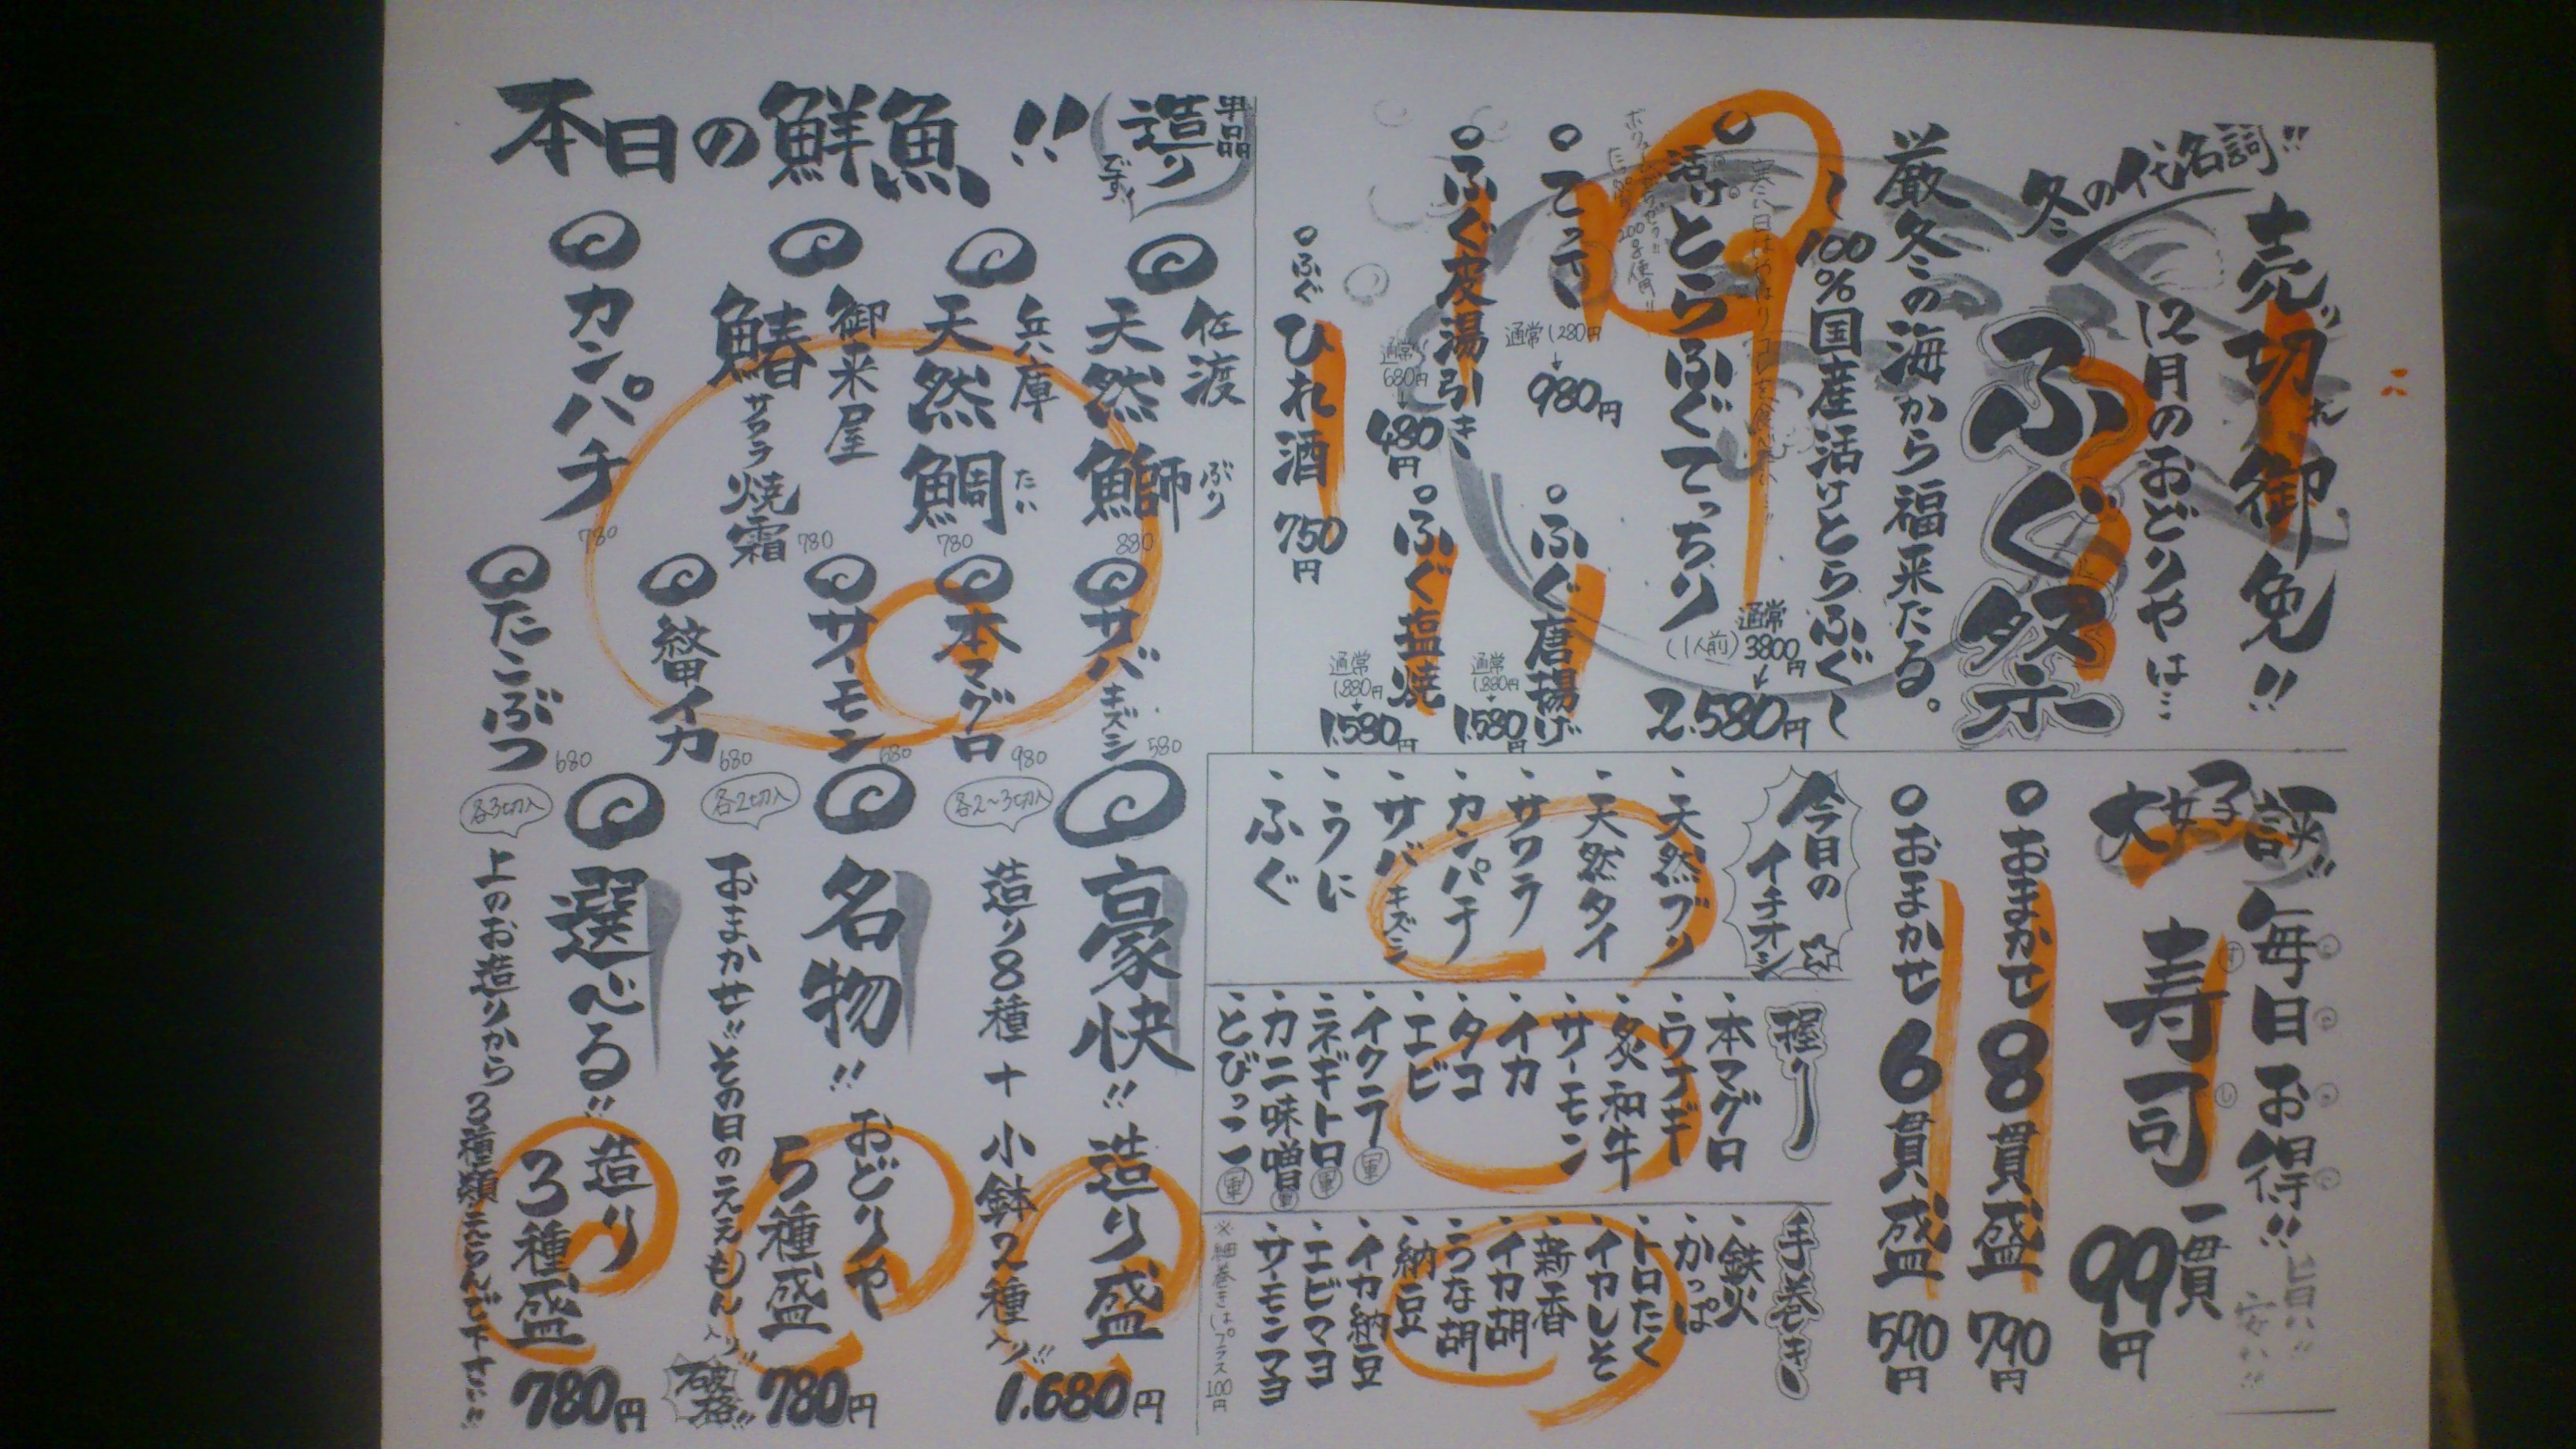 売り切れ御免!!
冬の代名詞!!
12月のおどりやは…
ふぐ祭
厳冬の海から福来たる。
～100%国産活けとらふぐ～
活けとらふぐてっちり
(1人前)
通常3800円
↓
2.580円
てっさ
通常1280円
↓
980円
ふぐ唐揚げ
通常1.880円
↓
1.580円
ふぐ皮湯引き
通常680円
↓
480円
ふぐ塩焼
通常1.880円
↓
1.580円
ふぐひれ酒 750円
大好評!!
毎日お得!!
旨い!!
安い!!
寿司
すし
一貫
99円
おまかせ8貫盛 790円
おまかせ6貫盛 590円
今日のイチオシ
・天然ブリ
・天然タイ
・サワラ
・カンパチ
・サバキズシ
・うに
・ふぐ
握り
・本マグロ
・ウナギ
・炙和牛
・サーモン
・イカ
・タコ
・エビ
・イクラ 軍
・ネギトロ 軍
・カニ味噌 軍
・とびっこ 軍
手巻き
・鉄火
・かっぱ
・トロたく
・イカしそ
・新香
・イカ胡
・うな胡
・納豆
・イカ納豆
・エビマヨ
・サーモンマヨ
※細巻きはプラス100円
本日の鮮魚!!
単品
造り
です!
佐渡
天然鰤 ぶり 880
兵庫
天然鯛 たい 780
御来屋
鰆 サワラ 焼霜 780
カンパチ 780
サバキズシ 580
本マグロ 980
サーモン 680
イカ 680
たこぶつ 680
豪快!! 造り盛
各2～3切入
造り8種+小鉢2種入り!!
1.680円
名物!! おどりや5種盛
各2切入
おまかせ!!その日のええもん入り!!
破格!!
780円
選べる!! 造り3種盛
各3切入
上のお造りから3種類えらんで下さい!!
780円